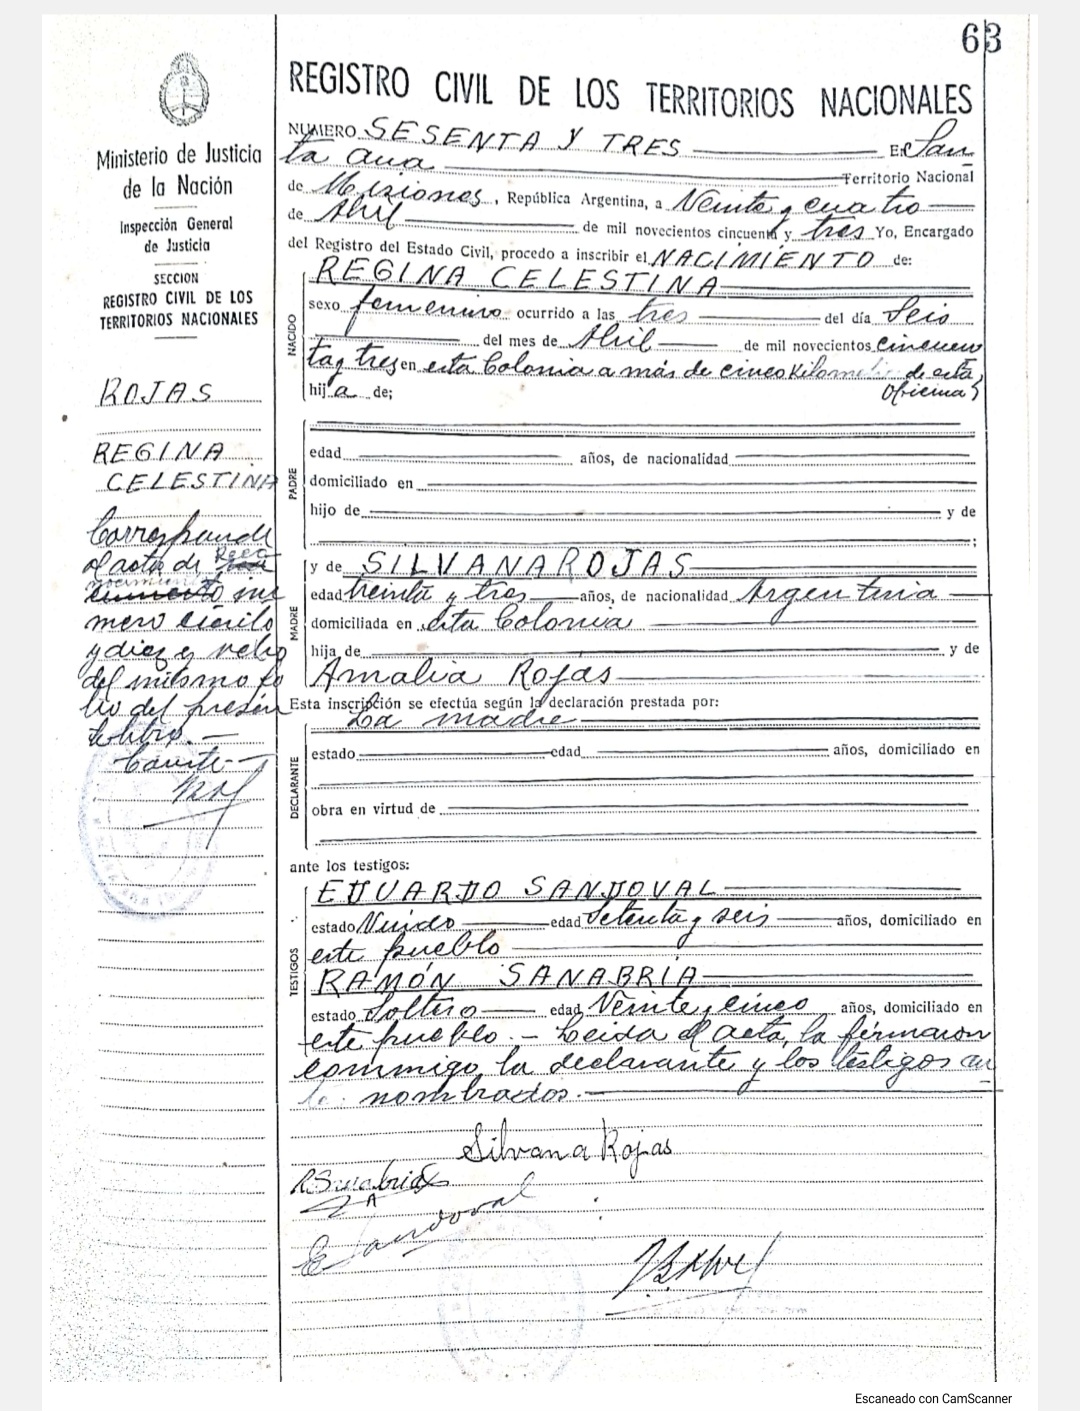 63
REGISTRO CIVIL DE LOS TERRITORIOS NACIONALES
Ministerio de Justicia
de la Nación
Inspección General
de Justicia
SECCION
REGISTRO CIVIL DE LOS
TERRITORIOS NACIONALES
ROJAS
REGINA
CELESTINA
Corresponde
el acta de Reco
nocimiento nú
mero ciento
y diez y ocho
del mismo fo
lio del presen
te libro.-
Conste-
NUMERO SESENTA Y TRES En San
ta Ana Territorio Nacional
de Misiones, República Argentina, a Veinte y cuatro
de Abril de mil novecientos cincuenta y tres Yo, Encargado
del Registro del Estado Civil, procedo a inscribir el NACIMIENTO de:
NACIDO
REGINA CELESTINA
sexo femenino ocurrido a las tres del día Seis
del mes de Abril de mil novecientos cincuen
ta y tres en esta Colonia a más de cinco kilometros de esta
hija de; oficina
PADRE
edad años, de nacionalidad
domiciliado en
hijo de y de
;
MADRE
y de SILVANA ROJAS
edad treinta y tres años, de nacionalidad Argentina
domiciliada en esta Colonia
hija de y de
Amalia Rojas
Esta inscripción se efectúa según la declaración prestada por:
La madre
DECLARANTE
estado edad años, domiciliado en
obra en virtud de
ante los testigos:
TESTIGOS
EDUARDO SANDOVAL
estado Viudo edad setenta y seis años, domiciliado en
este pueblo
RAMÓN SANABRIA
estado Soltero edad Veinte y cinco años, domiciliado en
este pueblo.- Leida el acta, la firmaron
conmigo, la declarante y los testigos an
te nombrados.-
Silvana Rojas
R Sanabria
E Sandoval
Escaneado con CamScanner